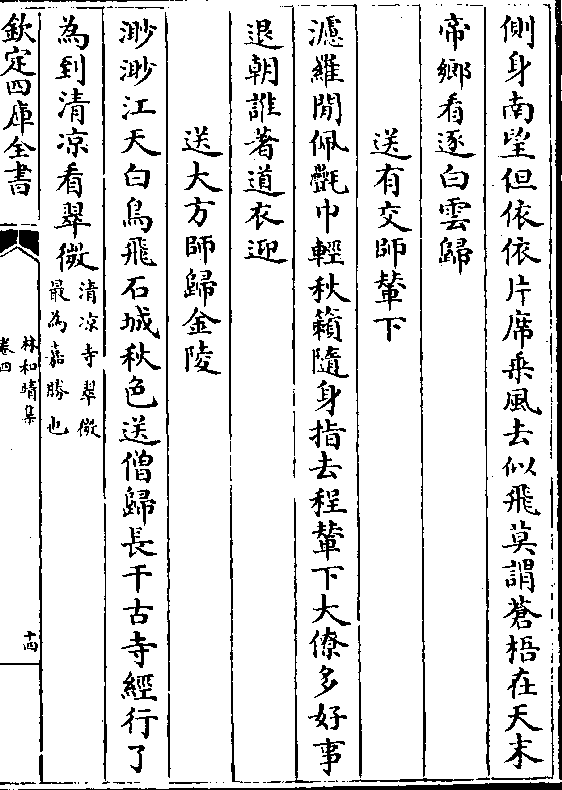 側身南望但依依片席乗風去似飛莫謂蒼梧在天末
帝鄉看逐白雲歸
送有交師輦下
濾羅閒佩㲲巾輕秋籟隨身指去程輦下大僚多好事
退朝誰著道衣迎
送大方師歸金陵
渺渺江天白鳥飛石城秋色送僧歸長干古寺經行了
為到清凉看翠微清凉寺翠微
最為嘉勝也
欽定四庫全書
林和靖集
卷四
十四